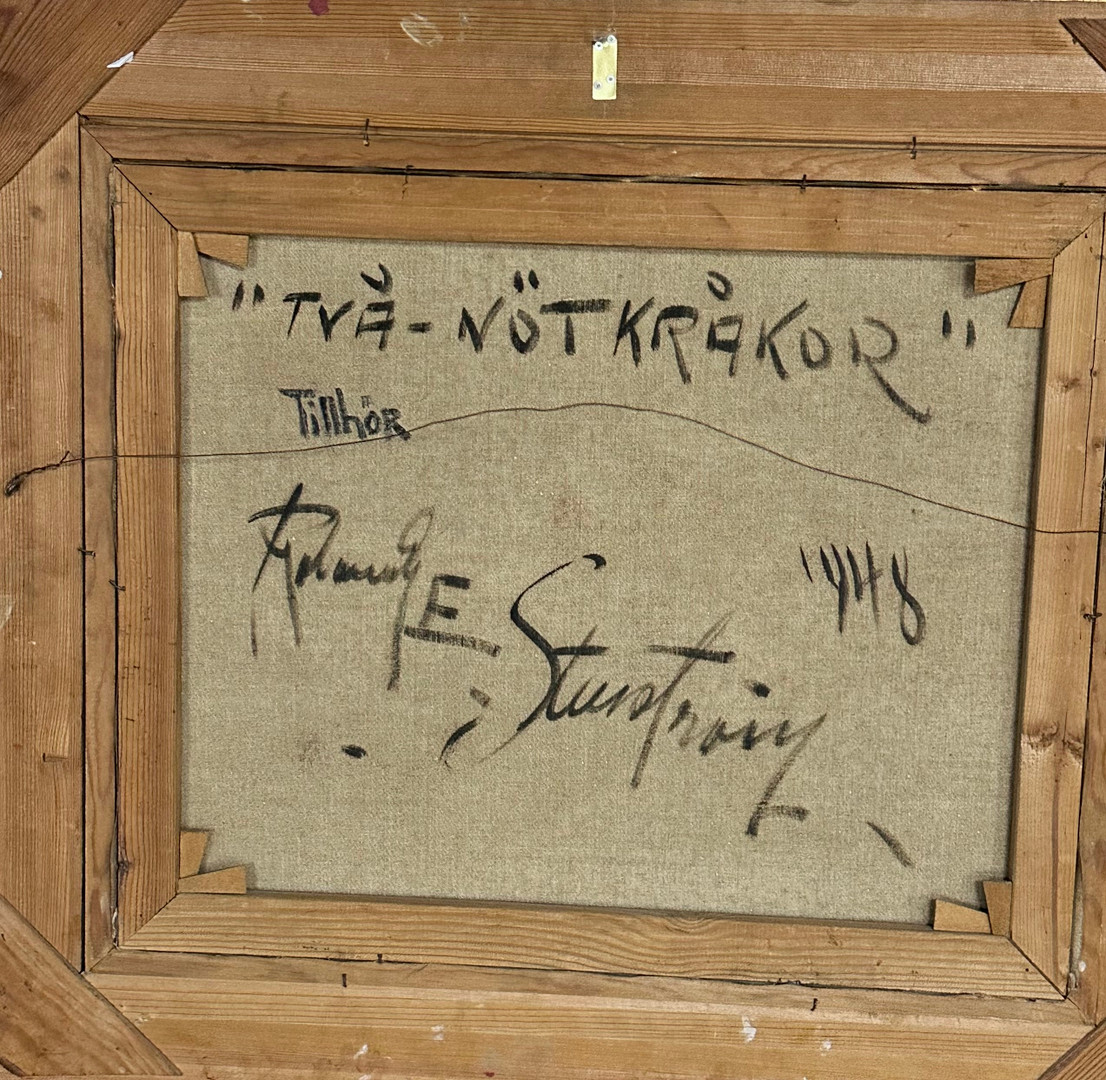 "TVÅ-NÖTKRÅKOR"
Tillhör
Roland E Stenström
1948